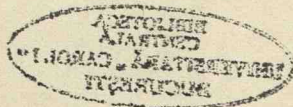 BIBLIOTECA
CENTRALA
UNIVERSITARA "CAROL I"
BUCUREŞTI